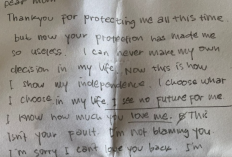 Dear Mum
Thankyou for protecting me all this time
but now your protection has made me
so useless. I can never make my own
decision in my life. Now this is how
I show my independence. I choose what
I choose in my life. I see no future for me
I know how much you love me. This
isn't your fault. I'm not blaming you.
I'm sorry I can't love you back. I'm